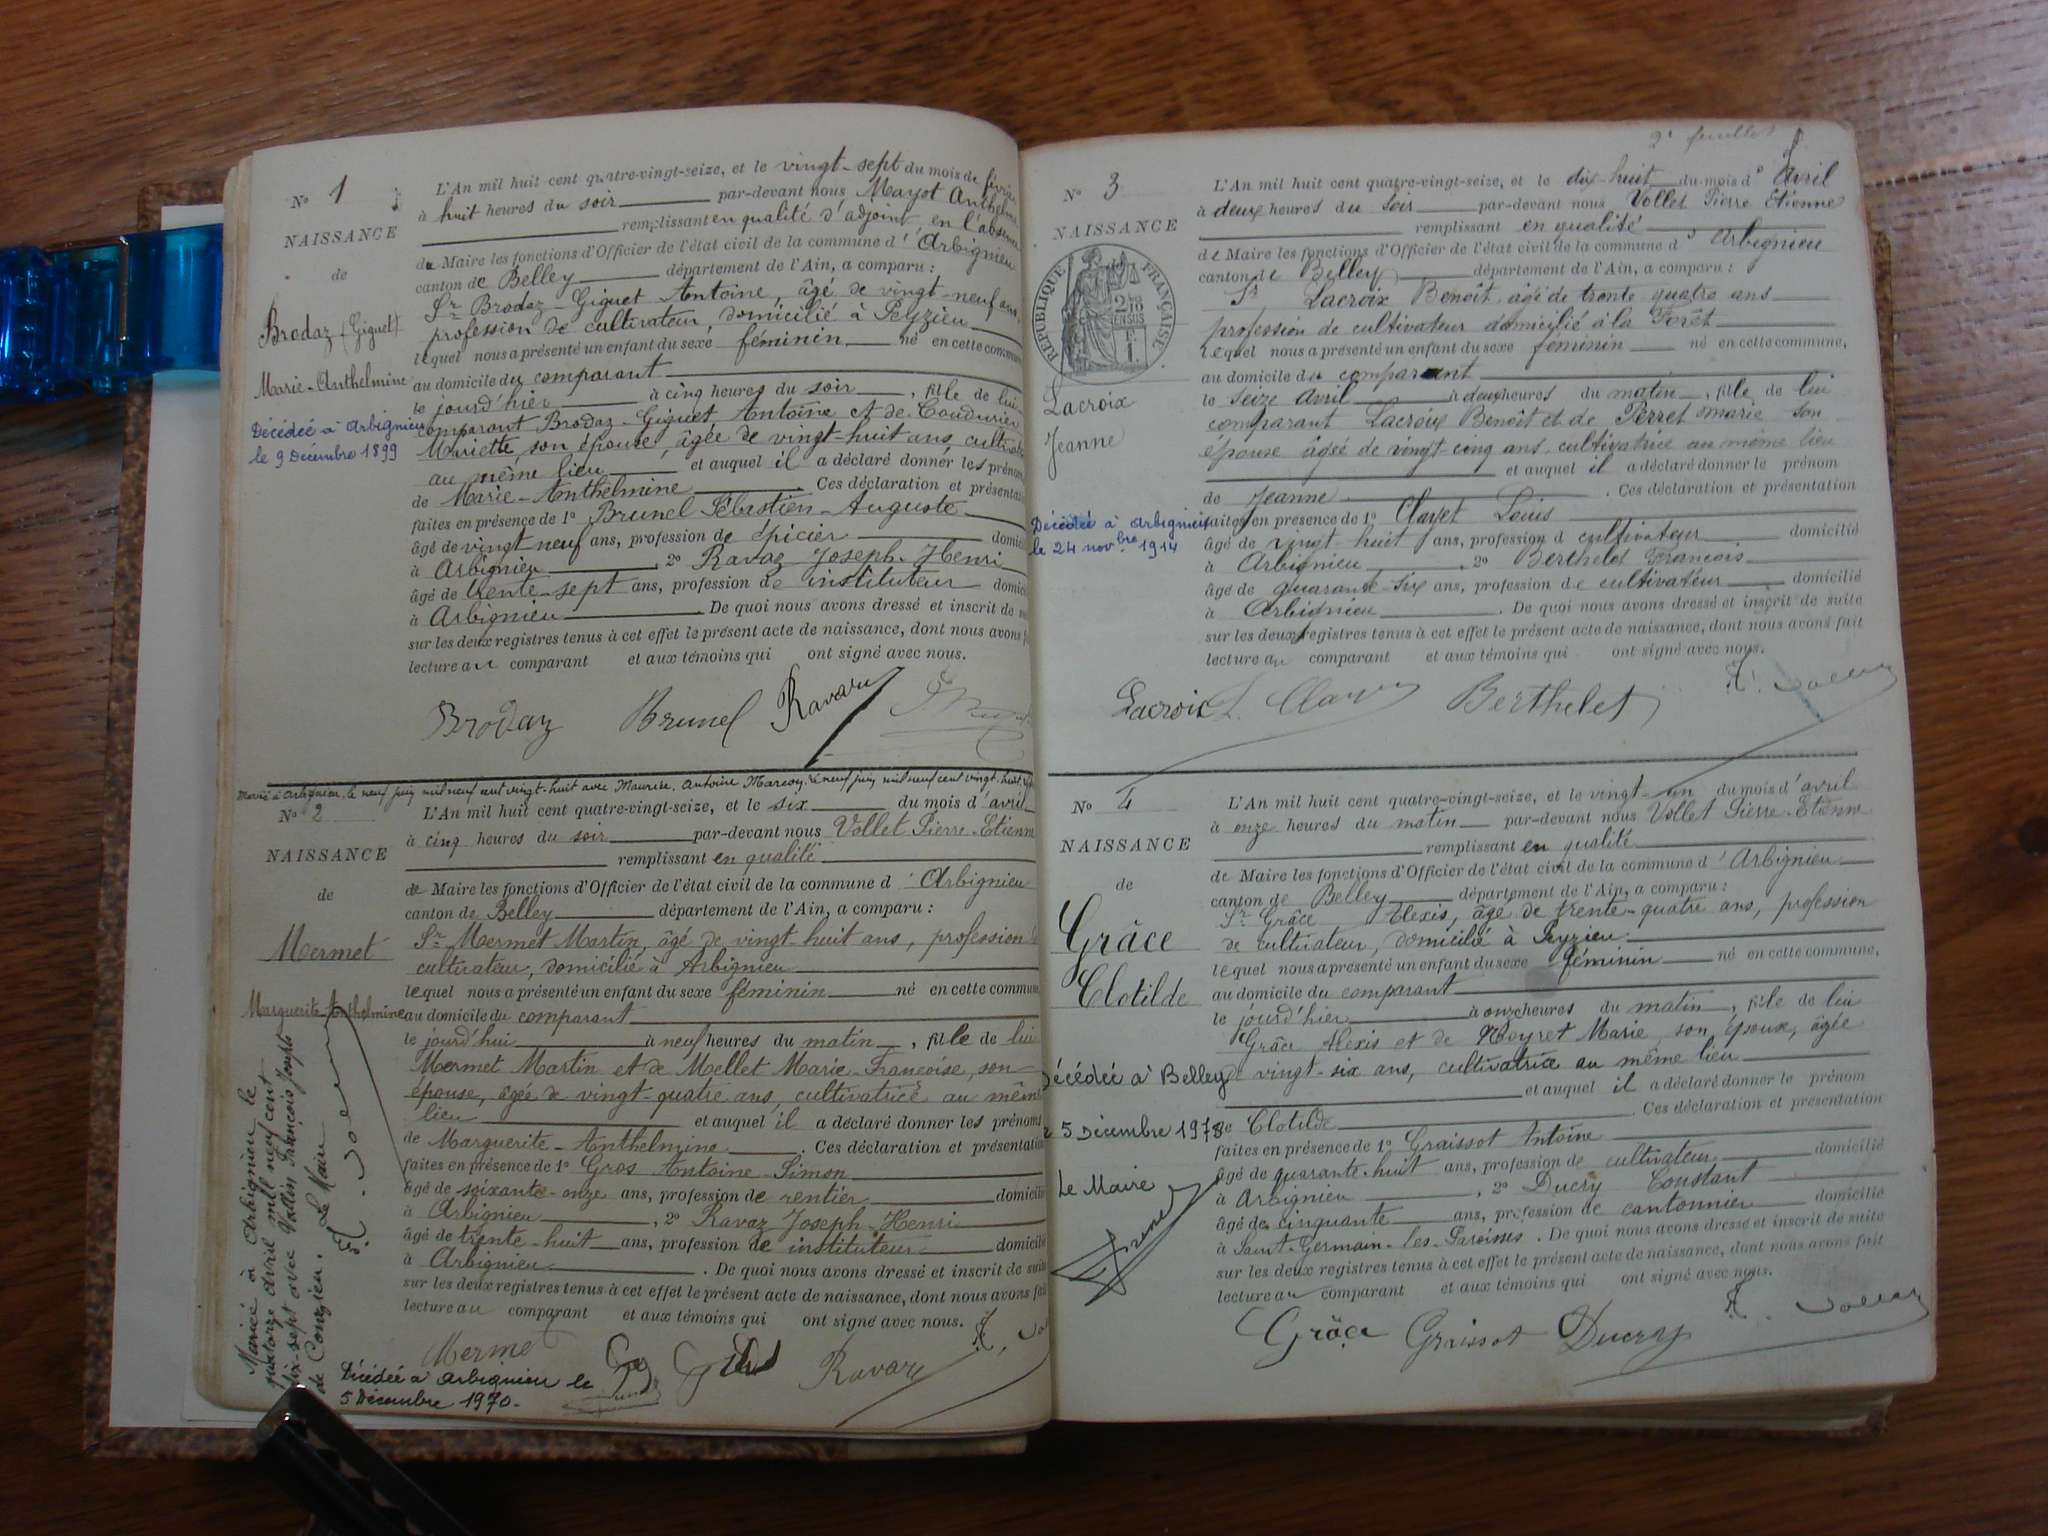 N° 1
NAISSANCE
de
Brodaz (Giguet)
Marie-Anthelmine
Décédée à Arbignieu
le 9 Décembre 1899
L'An mil huit cent quatre-vingt-seize, et le vingt-sept du mois de février
à huit heures du soir par-devant nous Mayot Anthelme
remplissant en qualité d'adjoint, en l'absence
du Maire les fonctions d'Officier de l'état civil de la commune d'Arbignieu
canton de Belley département de l'Ain, a comparu :
Sr Brodaz-Giguet Antoine, âgé de vingt-neuf ans,
profession de cultivateur, domicilié à Peyzieu
lequel nous a présenté un enfant du sexe féminin né en cette commune
au domicile du comparant
le jourd'hier à cinq heures du soir, fille de lui
comparant Brodaz-Giguet Antoine et de Coudurier
Mariette son épouse, âgée de vingt-huit ans, cultivatrice
au même lieu et auquel il a déclaré donner les prénoms
de Marie-Anthelmine. Ces déclaration et présentation
faites en présence de 1° Brunel Sébastien-Auguste
âgé de vingt neuf ans, profession de épicier domicilié
à Arbignieu, 2° Ravaz Joseph-Henri
âgé de trente-sept ans, profession de instituteur domicilié
à Arbignieu. De quoi nous avons dressé et inscrit de suite
sur les deux registres tenus à cet effet le présent acte de naissance, dont nous avons fait
lecture au comparant et aux témoins qui ont signé avec nous.
Brodaz Brunel Ravaz
Marié à Arbignieu, le neuf juin mil neuf cent vingt-huit avec Maurice, Antoine
N° 2
NAISSANCE
de
Mermet
Marguerite-Anthelmine
Mariée à Arbignieu le
quatorze avril mil neuf cent
dix-sept avec Vallin François Joseph
de Conzieu. Le Maire
L'An mil huit cent quatre-vingt-seize, et le six du mois d'avril
à cinq heures du soir par-devant nous Vollet Pierre-Etienne
remplissant en qualité
de Maire les fonctions d'Officier de l'état civil de la commune d'Arbignieu
canton de Belley département de l'Ain, a comparu :
Sr Mermet Martin, âgé de vingt-huit ans, profession de
cultivateur, domicilié à Arbignieu
lequel nous a présenté un enfant du sexe féminin né en cette commune
au domicile du comparant
le jourd'hui à neuf heures du matin, fille de lui
Mermet Martin et de Mollet Marie-Françoise, son
épouse, âgée de vingt-quatre ans, cultivatrice au même
lieu et auquel il a déclaré donner les prénoms
de Marguerite-Anthelmine. Ces déclaration et présentation
faites en présence de 1° Gros Antoine-Simon
âgé de soixante-onze ans, profession de rentier domicilié
à Arbignieu, 2° Ravaz Joseph-Henri
âgé de trente-huit ans, profession de instituteur domicilié
à Arbignieu. De quoi nous avons dressé et inscrit de suite
sur les deux registres tenus à cet effet le présent acte de naissance, dont nous avons fait
lecture au comparant et aux témoins qui ont signé avec nous.
Mermet Ravaz
Décédée à Arbignieu le
5 Décembre 1970.
2e feuillet
N° 3
NAISSANCE
RÉPUBLIQUE FRANÇAISE
Lacroix
Jeanne
Décédée à Arbignieu
le 24 novbre 1914
L'An mil huit cent quatre-vingt-seize, et le dix-huit du mois d'Avril
à deux heures du soir par-devant nous Vollet Pierre Etienne
remplissant en qualité
de Maire les fonctions d'Officier de l'état civil de la commune d'Arbignieu
canton de Belley département de l'Ain, a comparu :
Sr Lacroix Benoît âgé de trente quatre ans
profession de cultivateur domicilié à la Forêt
lequel nous a présenté un enfant du sexe féminin né en cette commune,
au domicile du comparant
le seize Avril à deux heures du matin, fille de lui
comparant Lacroix Benoît et de Perret Marie son
épouse âgée de vingt cinq ans cultivatrice au même lieu
et auquel il a déclaré donner le prénom
de Jeanne. Ces déclaration et présentation
faites en présence de 1° Clayet Louis
âgé de vingt huit ans, profession d cultivateur domicilié
à Arbignieu, 2° Berthelet François
âgé de quarante-six ans, profession de cultivateur domicilié
à Arbignieu. De quoi nous avons dressé et inscrit de suite
sur les deux registres tenus à cet effet le présent acte de naissance, dont nous avons fait
lecture au comparant et aux témoins qui ont signé avec nous.
Lacroix L. Clayet Berthelet
N° 4
NAISSANCE
de
Grâce
Clotilde
Décédée à Belley
5 Décembre 1978
Le Maire
L'An mil huit cent quatre-vingt-seize, et le vingt-un du mois d'avril
à onze heures du matin par-devant nous Vollet Pierre-Etienne
remplissant en qualité
de Maire les fonctions d'Officier de l'état civil de la commune d'Arbignieu
canton de Belley département de l'Ain, a comparu :
Sr Grâce Alexis, âgé de trente-quatre ans, profession
de cultivateur, domicilié à Peyzieu
lequel nous a présenté un enfant du sexe féminin né en cette commune,
au domicile du comparant
le jourd'hier à onze heures du matin, fille de lui
Grâce Alexis et de Moyret Marie, son épouse, âgée
de vingt-six ans, cultivatrice au même lieu
et auquel il a déclaré donner le prénom
de Clotilde. Ces déclaration et présentation
faites en présence de 1° Graissot Antoine
âgé de quarante-huit ans, profession de cultivateur domicilié
à Arbignieu, 2° Ducry Constant
âgé de cinquante ans, profession de cantonnier domicilié
à Saint-Germain-les-Paroisses. De quoi nous avons dressé et inscrit de suite
sur les deux registres tenus à cet effet le présent acte de naissance, dont nous avons fait
lecture au comparant et aux témoins qui ont signé avec nous.
Grâce Graissot Ducry